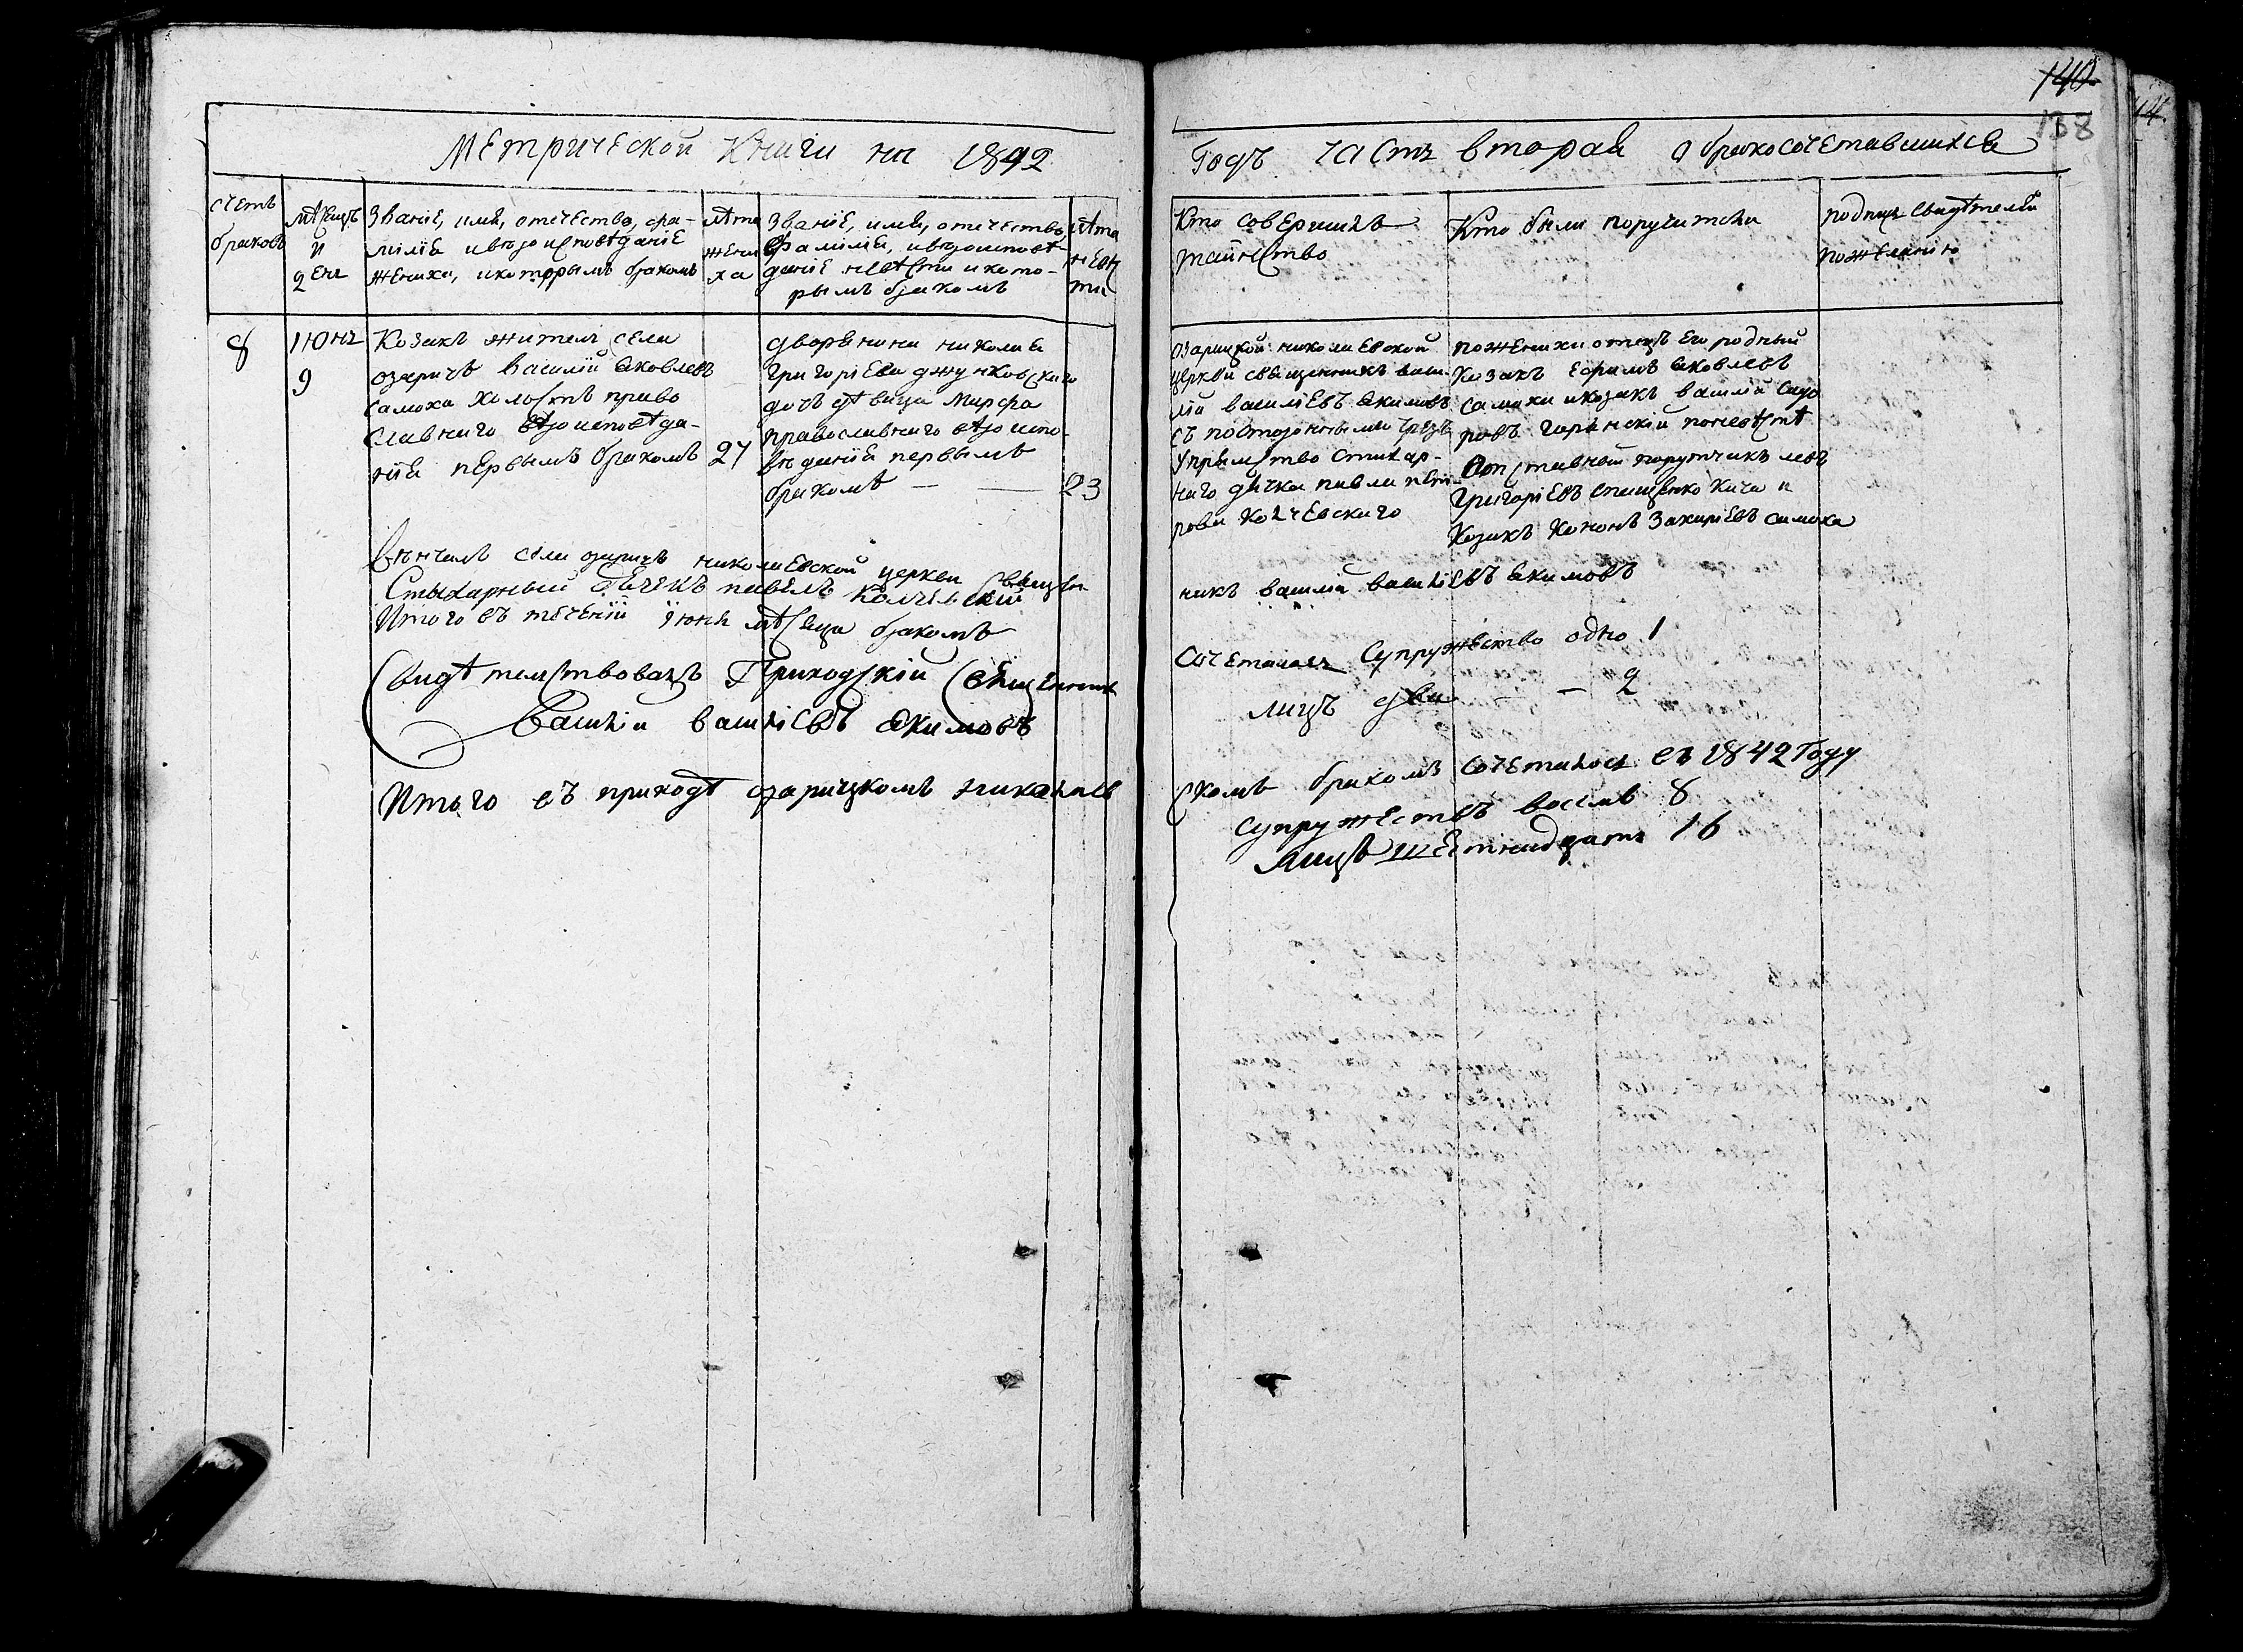 140
138
Метрической Книги на 1842
Годъ часть вторая о бракосочетавшихся
счетъ
браковъ
мѣсяцъ
и
день
Званіе, имя, отечество, фа-
милія и вѣроисповѣданіе
жениха, и которымъ бракомъ
лѣта
жени
ха
Званіе, имя, отечество,
Фамилія, и вѣроисповѣ-
даніе невѣсты и кото-
рымъ бракомъ
лѣта
невѣс
ты
Кто совершилъ
таинство
Кто были поручители
подпись свидѣтелей
по желанію
8
Июнь
9
Козакъ житель села
озаричъ Василій Яковлевъ
Самоха холостъ право
славнаго вѣроисповѣда-
нія первымъ бракомъ
27
дворянина николая
Григоріева джунковскаго
дочь дѣвица Марфа
православнаго вѣроиспо-
вѣданія первымъ
бракомъ — —
23
озарицкой николаевской
церкви священникъ васи-
лій василіевъ Якимовъ
съ посторонными чрезъ
Упрымство Стихар-
наго дячка павла пет-
рова Колчевскаго
по женихи отецъ его родный
Козакъ Ефимъ Яковлевъ
Самохи и козакъ василій Сидо
ровъ Гаринскій по невѣстѣ
Отставный порутчикъ левъ
Григоріевъ
Козакъ Кононъ Захаріевъ самоха
Вѣнчалъ села озаричъ николаевской церкви Священ
никъ василій василіевъ Якимовъ
Стыхарный Дячекъ павелъ Колчевскій
Итого въ теченіи Іюня мѣсяца бракомъ
Сочеталось Супружество одно 1
лицъ два — — 2
Свидѣтельствовалъ Приходскій Священникъ
Василій василіевъ Якимовъ
Итого въ приходѣ озарицкомъ николаев
скомъ бракомъ сочеталось въ 1842 Году
супружествъ восемъ 8
лицъ шестнадцать 16